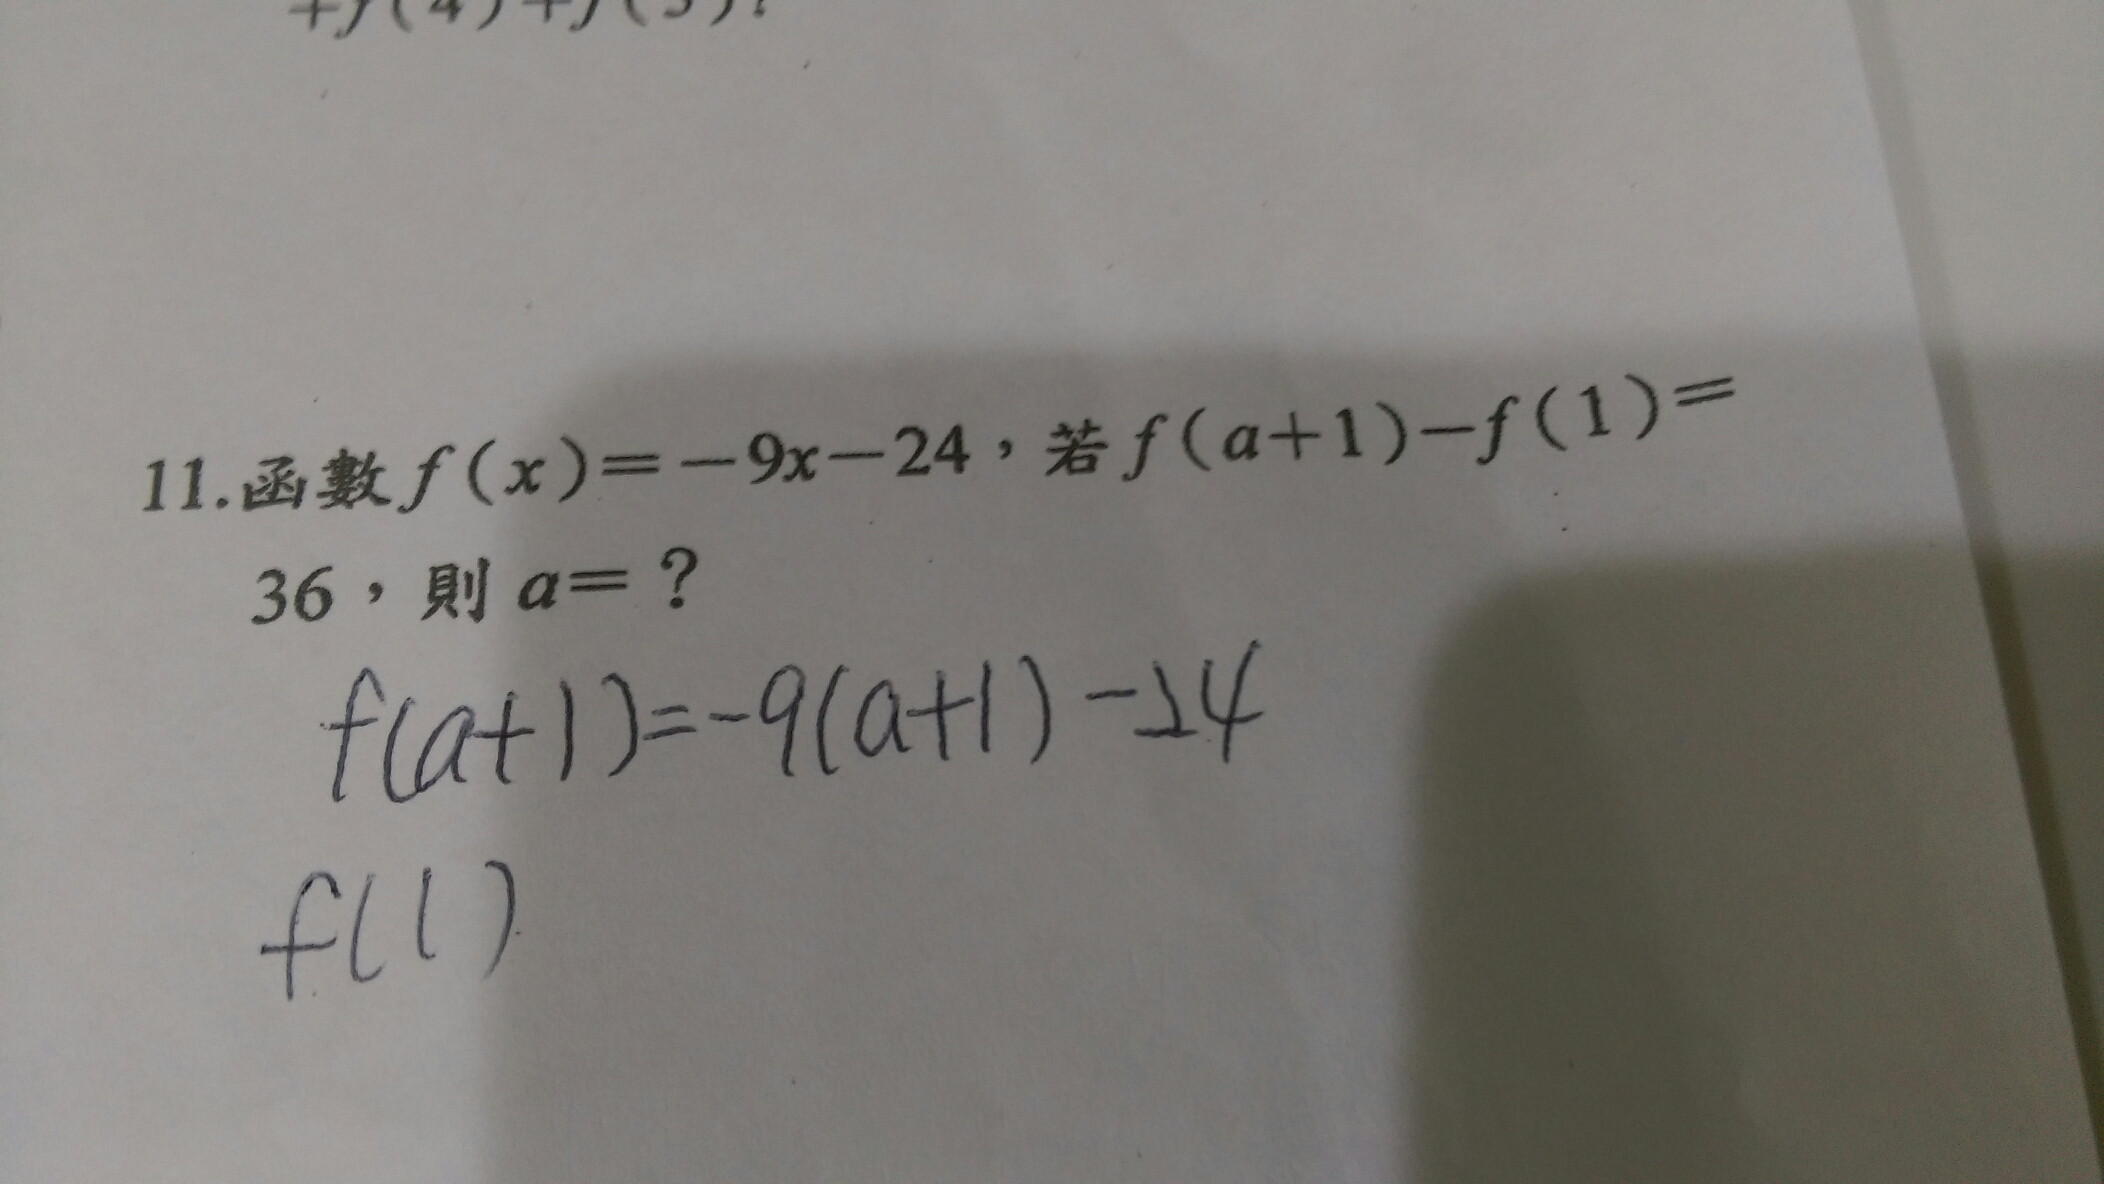 +f(4)+f(5)?
11.函數f(x)=-9x-24，若f(a+1)-f(1)=
36，則a=？
f(a+1)=-9(a+1)-24
f(1)